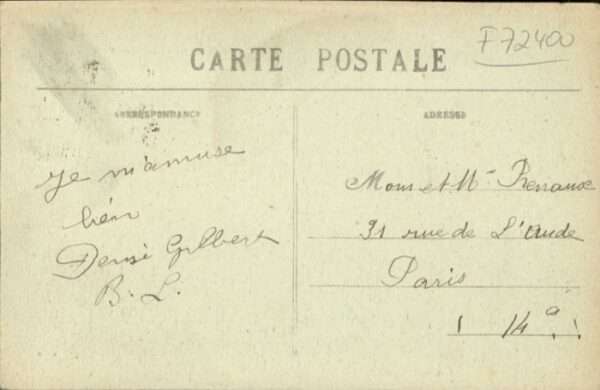 F72400
CARTE POSTALE
CORRESPONDANCE
ADRESSE
Je m'amuse
bien
Denise Gilbert
B. L.
Mons et Me
31 rue de L'Aude
Paris
14e